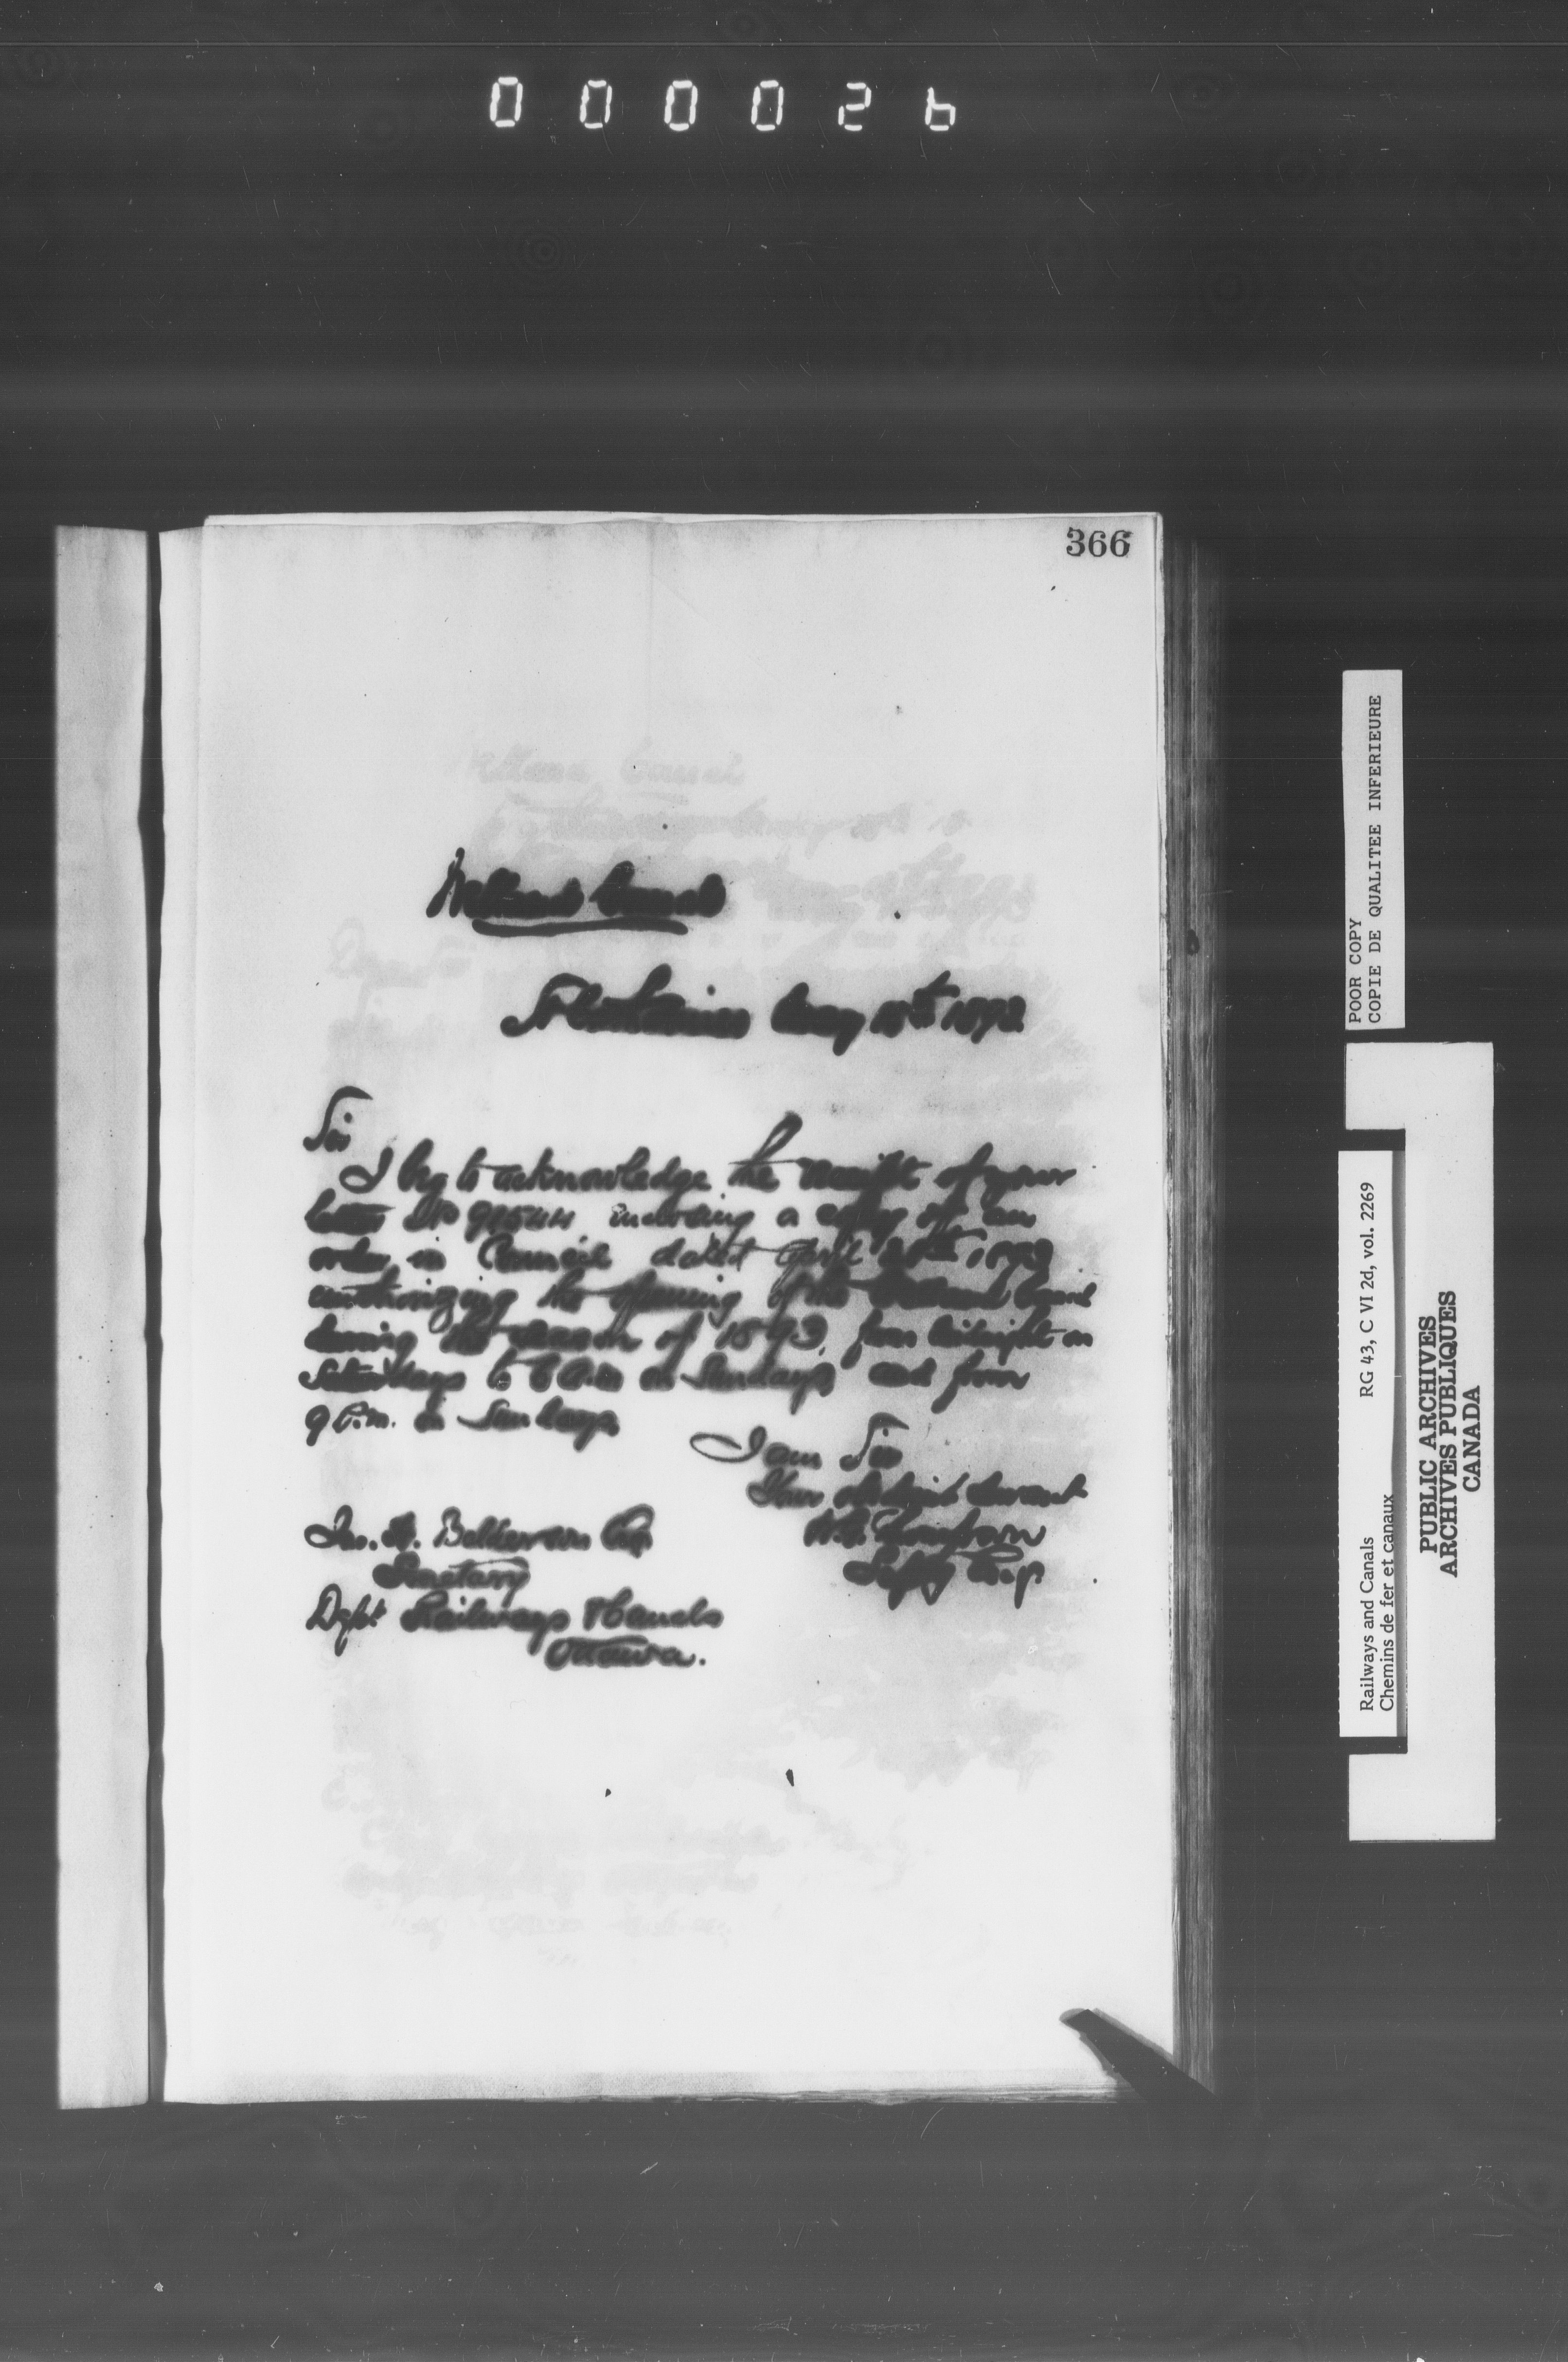 000026
366
Welland Canal
St Catharines May 15th 1893
Sir
I beg to acknowledge the receipt of your
letter No 91544 inclosing a copy of an
order in Council dated April 28th 1893
authorizing the opening of the Welland Canal
during the season of 1893, from midnight on
Saturdays to 6 a.m. on Sundays and from
9 P.m. on Sundays
I am Sir
Your obedient servant
W. G. Thompson
Supty Eng.
Jno. H. Balderson Esq
Secretary
Dept Railways & Canals
Ottawa.
POOR COPY
COPIE DE QUALITEE INFERIEURE
Railways and Canals RG 43, C VI 2d, vol. 2269
Chemins de fer et canaux
PUBLIC ARCHIVES
ARCHIVES PUBLIQUES
CANADA